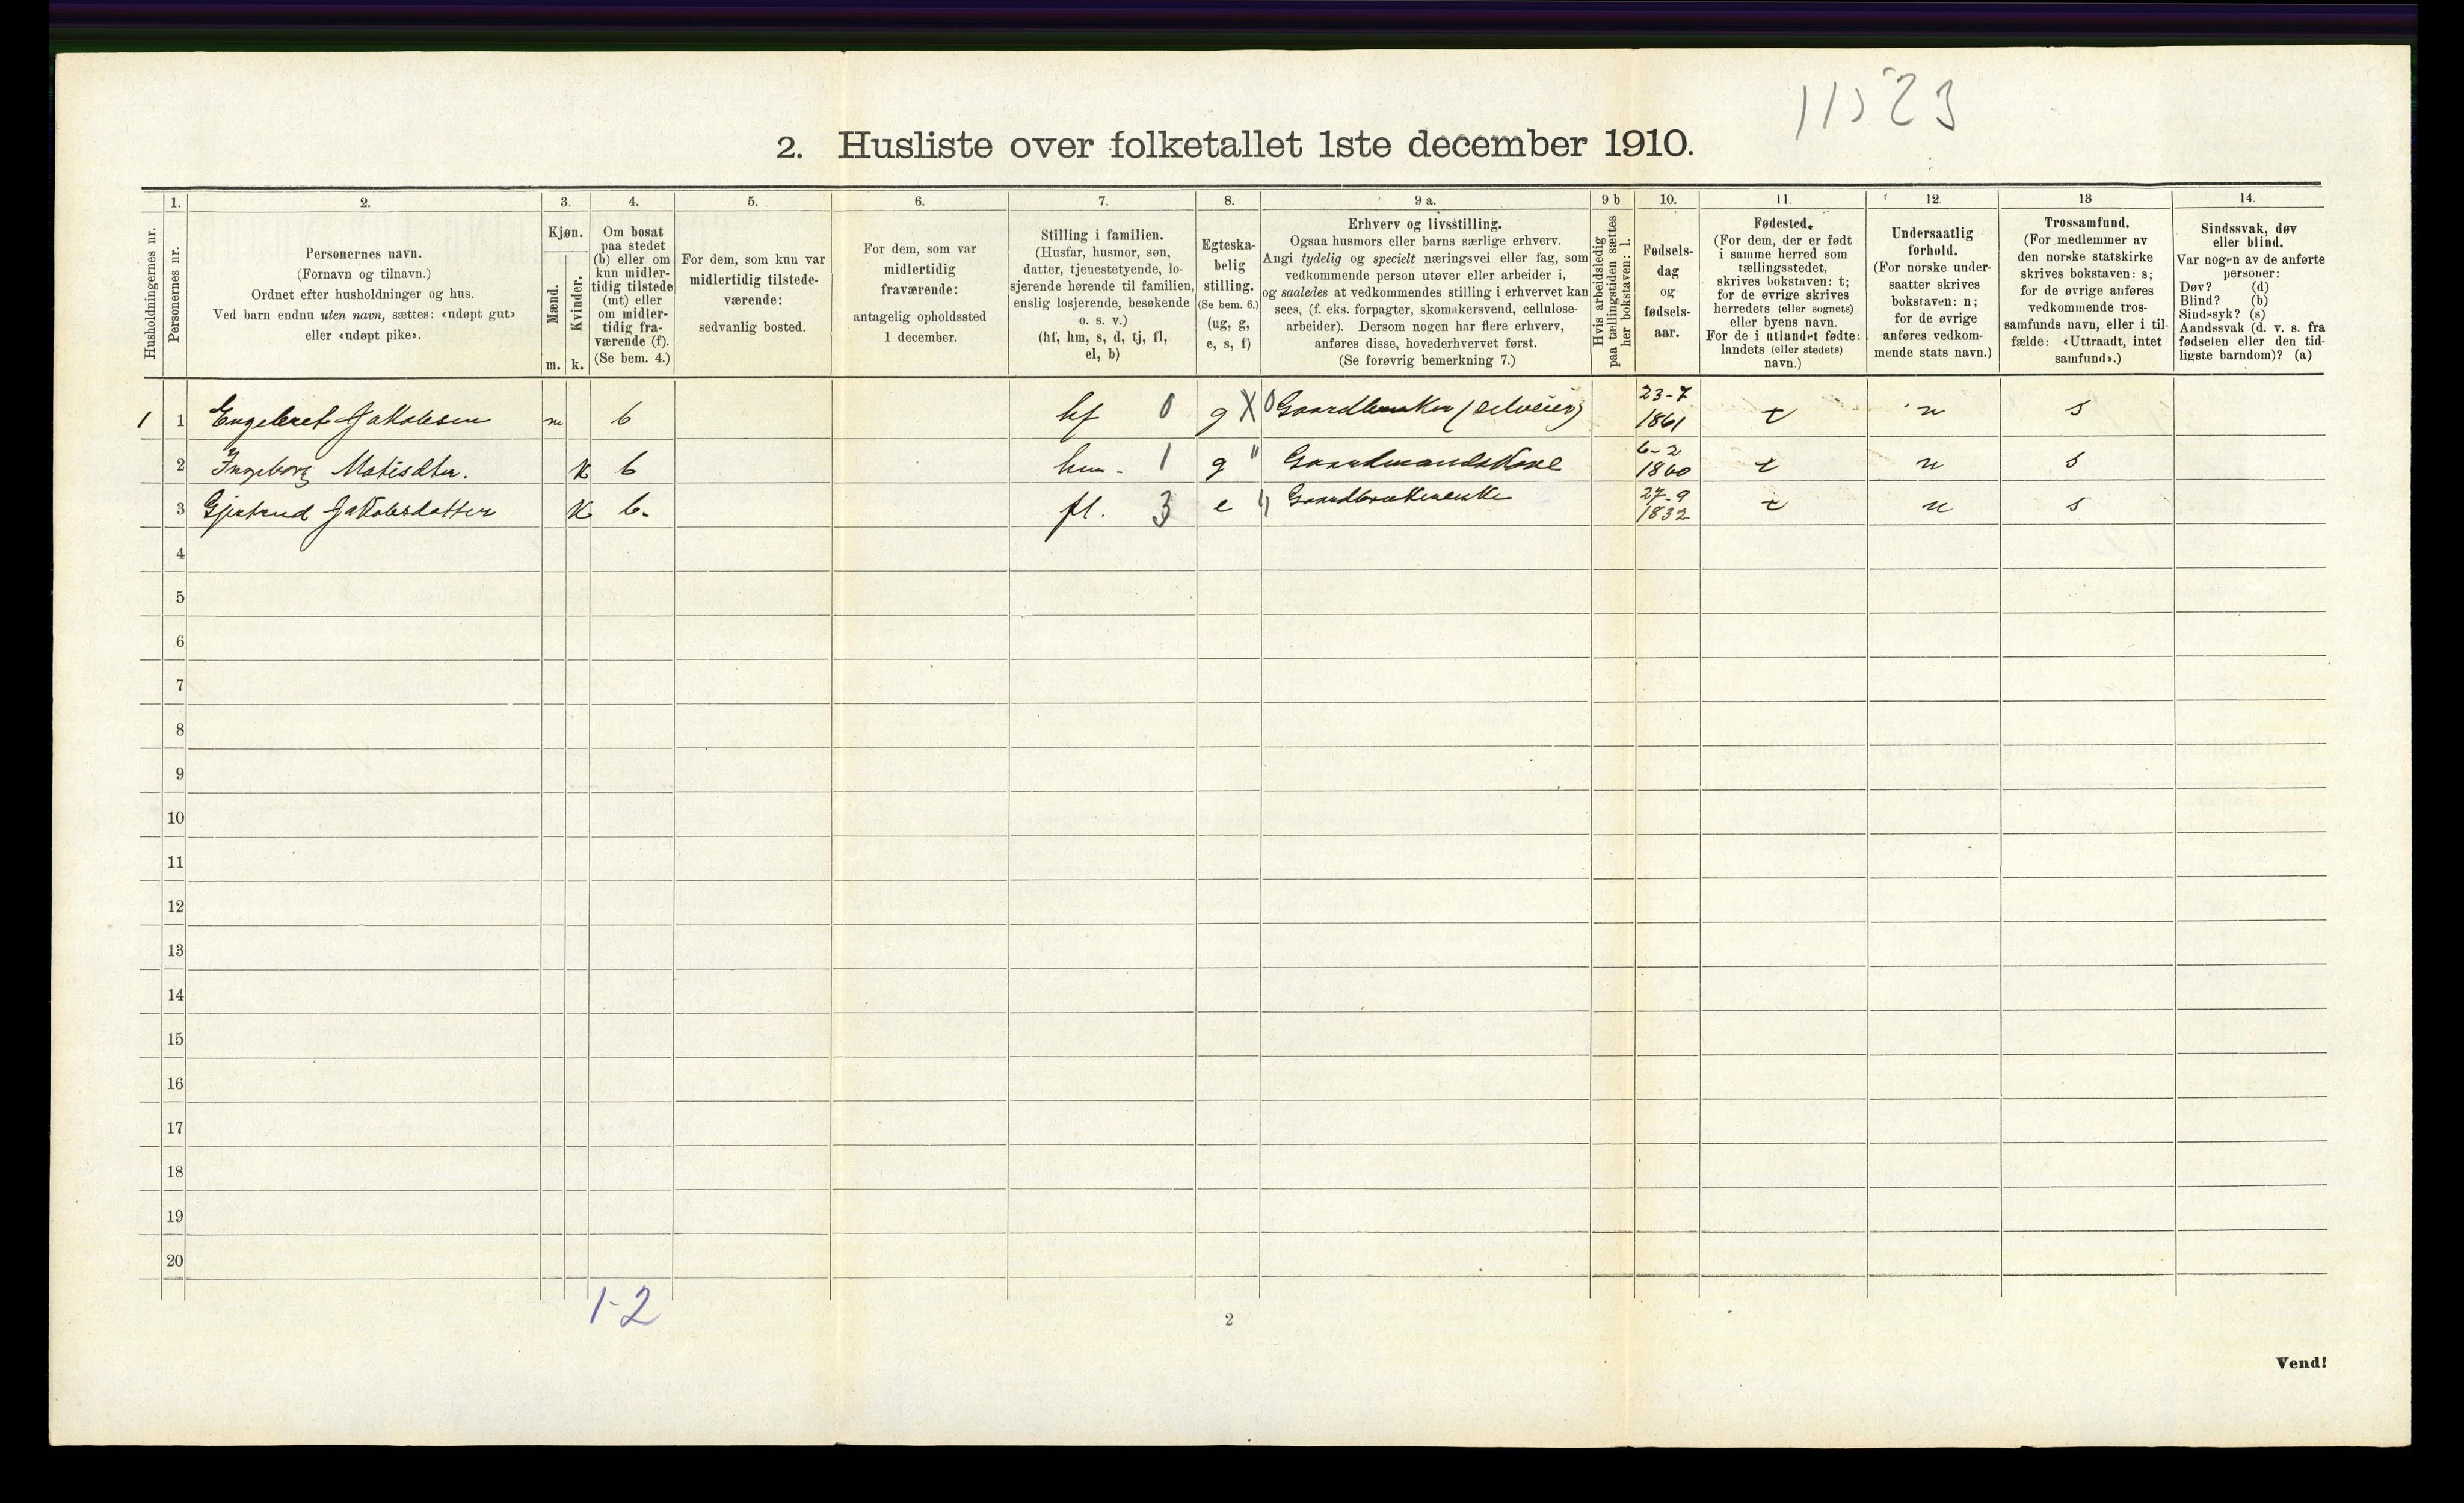 11523
2. Husliste over folketallet 1ste december 1910.
Husholdningernes nr.
1.
Personernes nr.
2.
Personernes navn.
(Fornavn og tilnavn.)
Ordnet efter husholdninger og hus.
Ved barn endnu uten navn, sættes: «udøpt gut»
eller «udøpt pike».
3.
Kjøn.
Mænd.
Kvinder.
m. k.
4.
Om bosat
paa stedet
(b) eller om
kun midler-
tidig tilstede
(mt) eller
om midler-
tidig fra-
værende (f).
(Se bem. 4.)
5.
For dem, som kun var
midlertidig tilstede-
værende:
sedvanlig bosted.
6.
For dem, som var
midlertidig
fraværende:
antagelig opholdssted
1 december.
7.
Stilling i familien.
(Husfar, husmor, søn,
datter, tjenestetyende, lo-
sjerende hørende til familien,
enslig losjerende, besøkende
o. s. v.)
(hf, hm, s, d, tj, fl,
el, b)
8.
Egteska-
belig
stilling.
(Se bem. 6.)
(ug, g,
e, s, f)
9 a.
Erhverv og livsstilling.
Ogsaa husmors eller barns særlige erhverv.
Angi tydelig og specielt næringsvei eller fag, som
vedkommende person utøver eller arbeider i,
og saaledes at vedkommendes stilling i erhvervet kan
sees, (f. eks. forpagter, skomakersvend, cellulose-
arbeider). Dersom nogen har flere erhverv,
anføres disse, hovederhvervet først.
(Se forøvrig bemerkning 7.)
9 b
Hvis arbeidsledig
paa tællingstiden sættes
her bokstaven: l.
10.
Fødsels-
dag
og
fødsels-
aar.
11.
Fødested.
(For dem, der er født
i samme herred som
tællingsstedet,
skrives bokstaven: t;
for de øvrige skrives
herredets (eller sognets)
eller byens navn.
For de i utlandet fødte:
landets (eller stedets)
navn.)
12.
Undersaatlig
forhold.
(For norske under-
saatter skrives
bokstaven: n;
for de øvrige
anføres vedkom-
mende stats navn.)
13
Trossamfund.
(For medlemmer av
den norske statskirke
skrives bokstaven: s;
for de øvrige anføres
vedkommende tros-
samfunds navn, eller i til-
fælde: «Uttraadt, intet
samfund».)
14.
Sindssvak, døv
eller blind.
Var nogen av de anførte
personer:
Døv? (d)
Blind? (b)
Sindssyk? (s)
Aandssvak (d. v. s. fra
fødselen eller den tid-
ligste barndom)? (a)
1 1 Engebret Jakobsen m b hf 0 g X 0 Gaardbruker (selveier) 23-7 1861 t n s
2 Ingeborg Matisdtr. k b hm - 1 g " Gaardmandskone 6-2 1860 t n s
3 Gjertrud Jakobsdatter k b. fl. 3 e Gaardbrukerenke 27-9 1832 t n s
4
5
6
7
8
9
10
11
12
13
14
15
16
17
18
19
20
1-2
2
Vend!